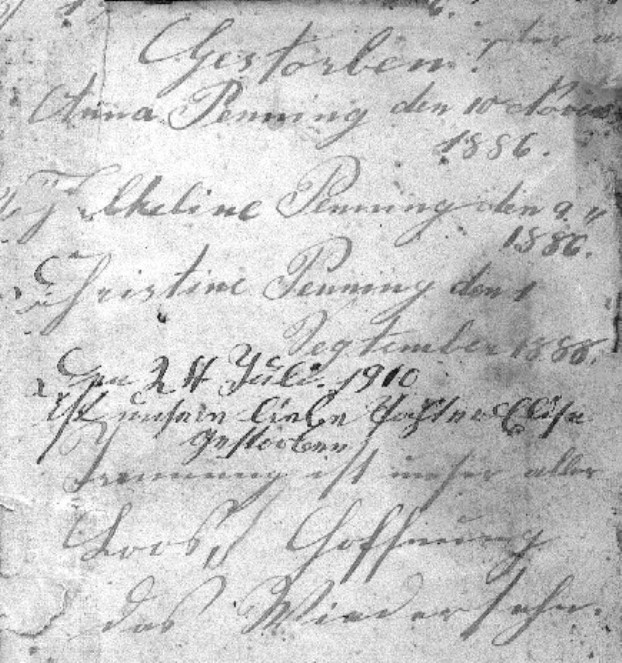 Gestorben.
Anna Penning den 10 Novem
1886.
Penning den 9 "
1886.
Christine Penning den 1
September 1888.
Den 24 Jüli. 1910
ist unsere liebe Tochter Elise
gestorben
Trennung ist unser aller
Loos, Hoffnung
das Wiedersehn.